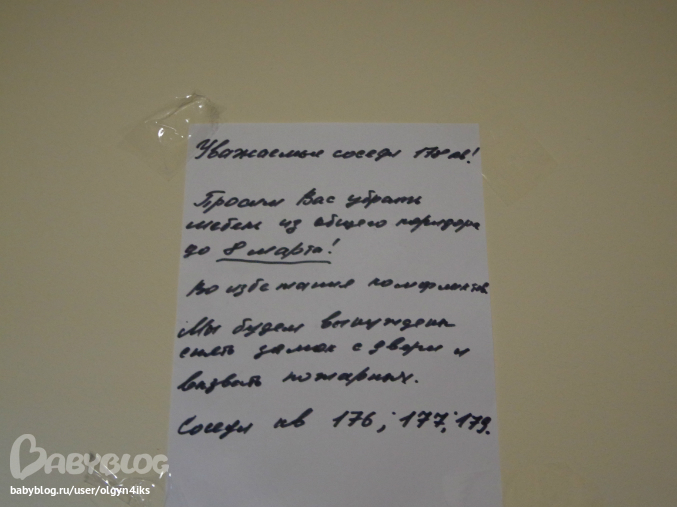 Уважаемые соседи 178 кв!
Просим Вас убрать
мебель из общего коридора
до 8 марта!
Во избежания конфликтов
Мы будем вынуждены
снять замок с двери и
вызвать пожарных.
Соседи кв 176, 177, 179.
BABYBLOG
babyblog.ru/user/olgyn4iks